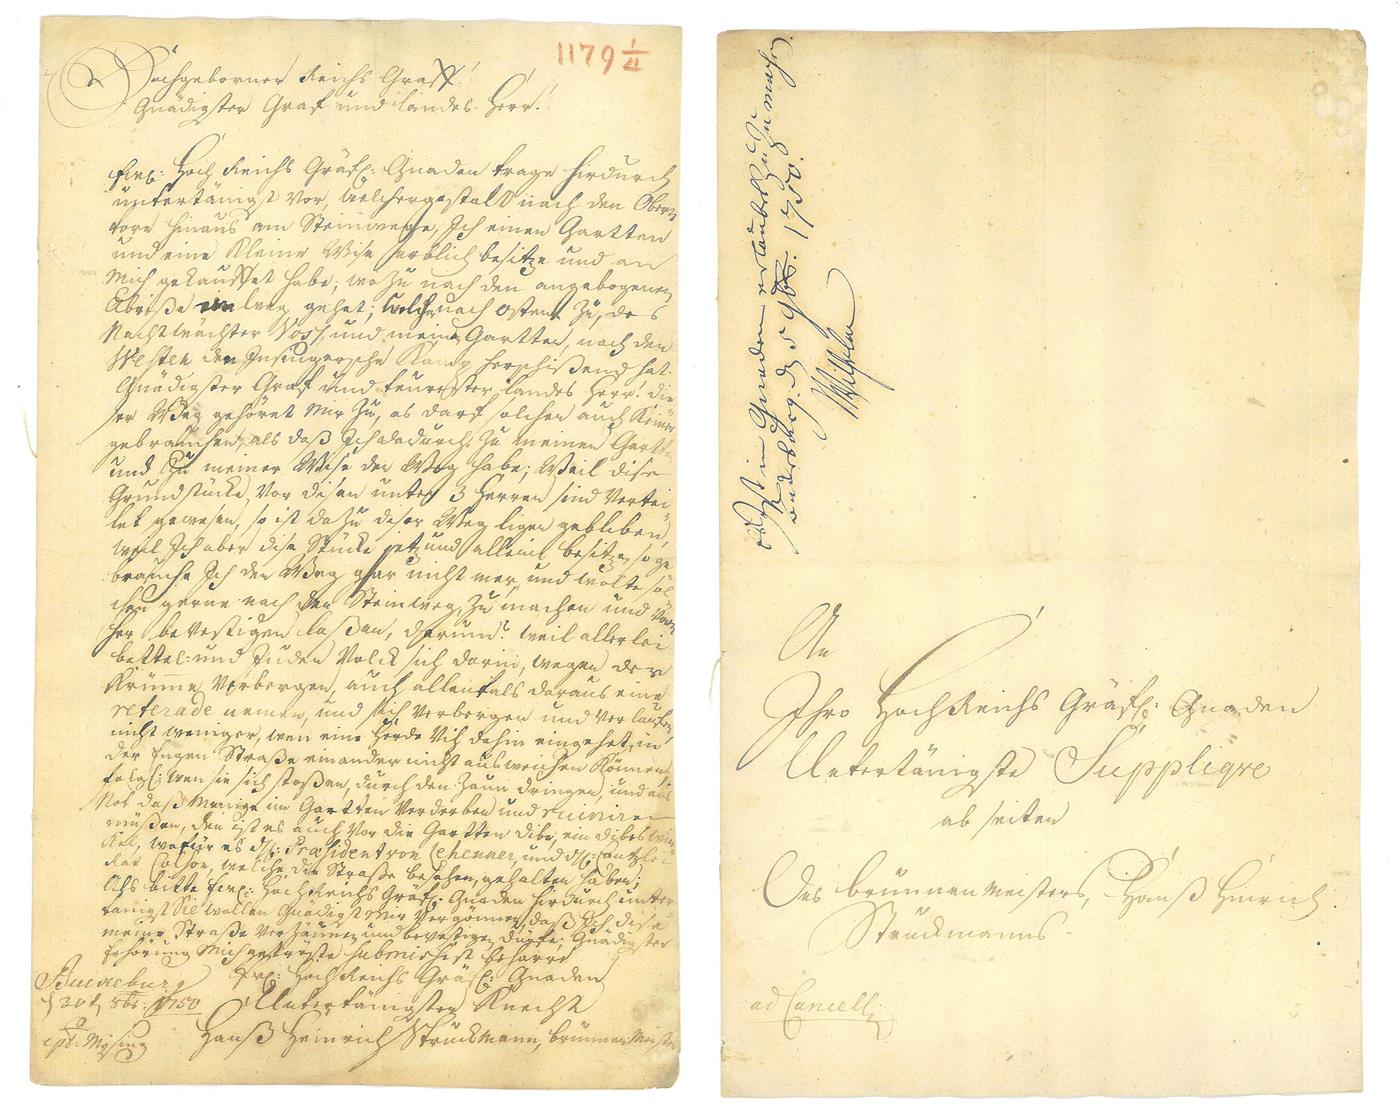 1179 1/II
Hochgeborner Reichs Graff!
Gnädigster Graf und Landes-Herr!
Ew: Hoch Reichs Gräfl: Gnaden trage hirdurch
untertänigst vor, welchergestalt nach den Obern
tore hinaus am Steinwege, Ich einen Gartten
und eine Kleine Wise erblich besitze und an
Mich gekauffet habe; wo zu nach den angebogenen
Abriße ein weg gehet; welcher nach osten zu, des
Nachtwächter Voss, und meine Gartten, nach den
Westen den Kamp herschißend hat.
Gnädigster Graf und teurester Landes Herr! die
ser Weg gehöret Mir zu, es darf solchen auch Keiner
gebrauchen, als daß Ich dadurch zu meinen Gartten
und zu meiner Wise den Weg habe; Weil dise
Grundstücke, Vor disen unter 3 Herren sind Vertei
let gewesen, so ist dazu diser Weg ligen gebliben,
weil Ich aber dise Stücke jetzund allein besitze, so ge
brauche Ich den Weg gar nicht mer, und wolte sol
chen gerne nach den Steinweg, zu machen und Vor
her bevestigen laßen, darum? weil allerlei
bettel- und Juden Volck sich darin, wegen der
Krümme Verbergen, auch allenfals daraus eine
reterade nemen, und sich Verbergen und Verlaufen,
nicht weniger, wen eine Herde Vih dahin eingehet, in
der Engen Straße einander nicht ausweichen Können,
folgl: wen sie sich stoßen, durch den Zaun dringen, und aus
Not daß Meinige im Gartten Verderben und ruiniren
müßen, den ist es auch Vor die Gartten dibe, ein dibes win
kel, wofür es H: Præsident von Lehenner, und H: Cantzlei
Rat Colson, welche die Straße besehen, gehalten haben;
Als bitte Ew: HochReichs Gräfl: Gnaden hirdurch unter
tänigst Sie wollen Gnädigst Mir Vergönnen, daß Ich dise
meine Straße Verzäunen und bevestigen dürfe; Gnädigster
Erhörung Mich getröste submissist beharre
Ew: HochReichs Gräfl: Gnaden
Untertänigster Knecht
Hanß Heinrich Struckmann, brunnen Meister
Buckeburg
d 30t 8br: 1750
Mysing
Ist in Gnaden erlaubet zu zu mach.
d 5 9br. 1750.
Wilhelm
An
Ihro HochReichs Gräfl: Gnaden
Untertänigste Supplique
ab seiten
Des brunnenmeisters, Hanß Hinrich
Struckmanns-
ad Cancell: